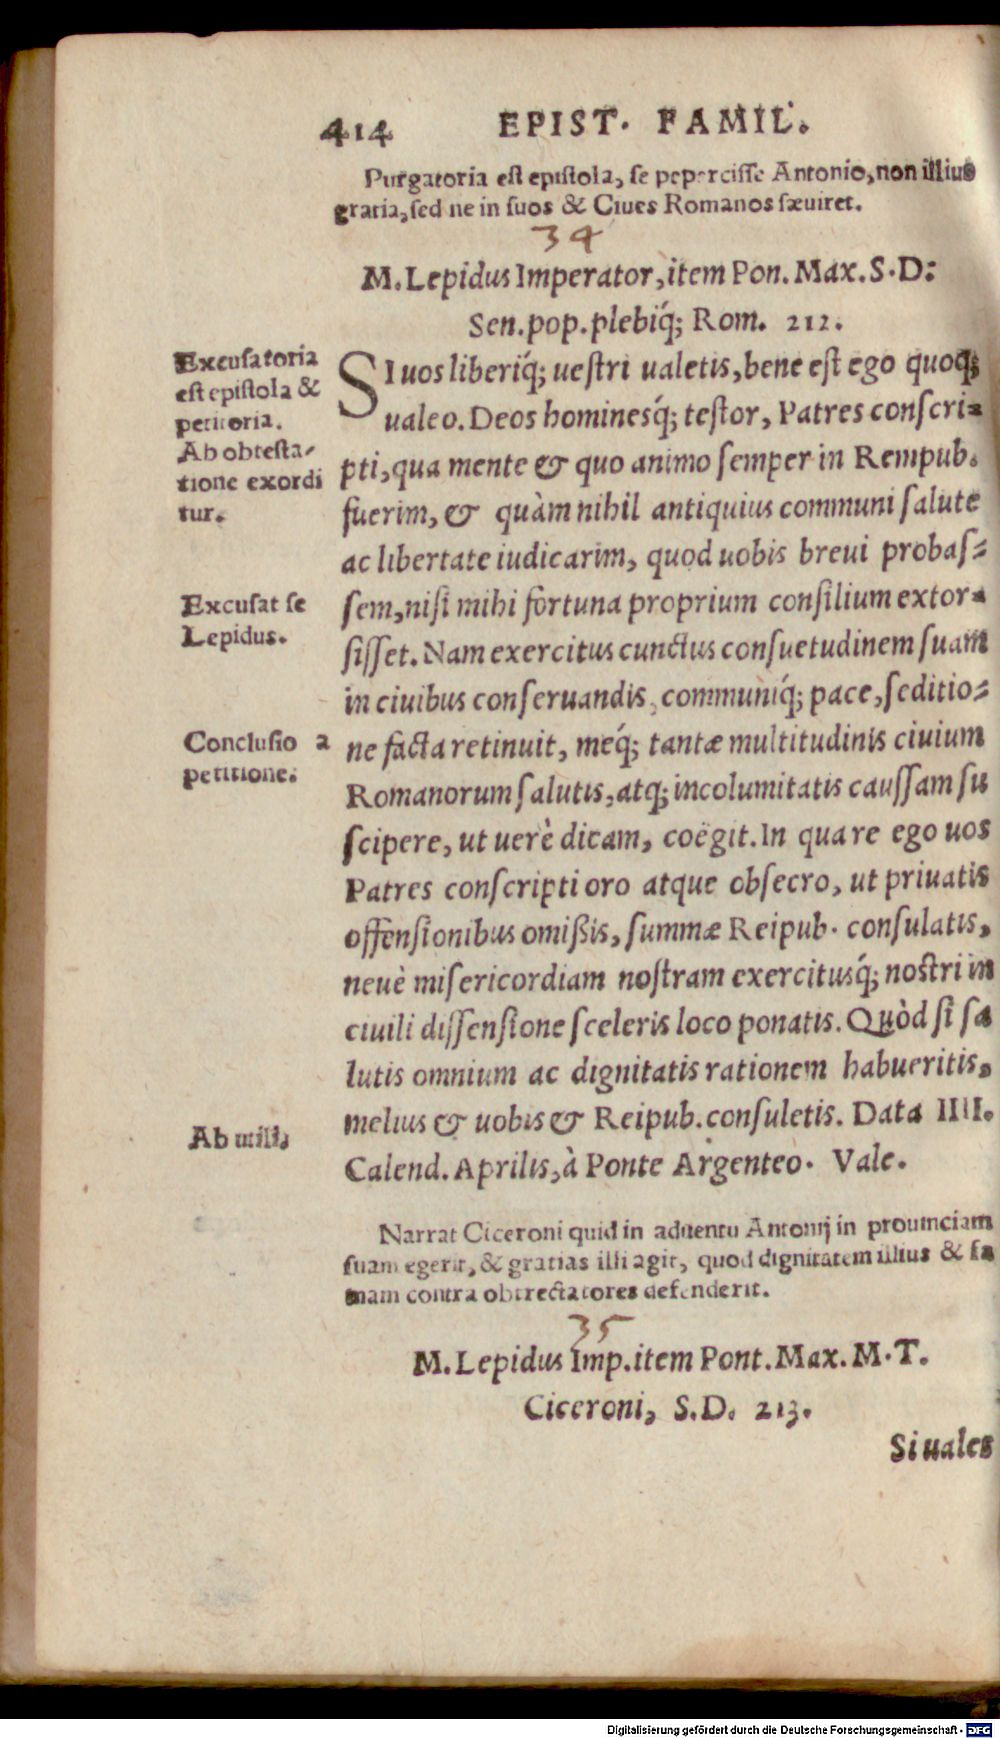 414 EPIST. FAMIL.
Purgatoria est epistola, se pepercisse Antonio, non illius
gratia, sed ne in suos & Ciues Romanos sæuiret.
34
M. Lepidus Imperator, item Pon. Max. S. D:
Sen. pop. plebiq́; Rom. 212.
Excusatoria
est epistola &
petitoria.
Ab obtesta-
tione exordi
tur.
SI uos liberiq́; uestri ualetis, bene est ego quoq;
ualeo. Deos hominesq́; testor, Patres conscri-
pti, qua mente & quo animo semper in Rempub.
fuerim, & quàm nihil antiquius communi salute
ac libertate iudicarim, quod uobis breui probas-
sem, nisi mihi fortuna proprium consilium extor-
sisset. Nam exercitus cunctus consuetudinem suam
in ciuibus conseruandis, communiq́; pace, seditio-
ne facta retinuit, meq́; tantæ multitudinis ciuium
Romanorum salutis, atq; incolumitatis caussam su
scipere, ut uerè dicam, coëgit. In qua re ego uos
Patres conscripti oro atque obsecro, ut priuatis
offensionibus omißis, summæ Reipub. consulatis,
neuè misericordiam nostram exercitusq́; nostri in
ciuili dissensione sceleris loco ponatis. Quòd si sa
lutis omnium ac dignitatis rationem habueritis,
melius & uobis & Reipub. consuletis. Data IIII.
Calend. Aprilis, à Ponte Argenteo. Vale.
Excusat se
Lepidus.
Conclusio a
petitione.
Ab utili,
Narrat Ciceroni quid in aduentu Antonij in prouinciam
suam egerit, & gratias illi agit, quod dignitatem illius & fa
mam contra obtrectatores defenderit.
35
M. Lepidus Imp. item Pont. Max. M. T.
Ciceroni, S. D. 213.
Si uales
Digitalisierung gefördert durch die Deutsche Forschungsgemeinschaft - DFG